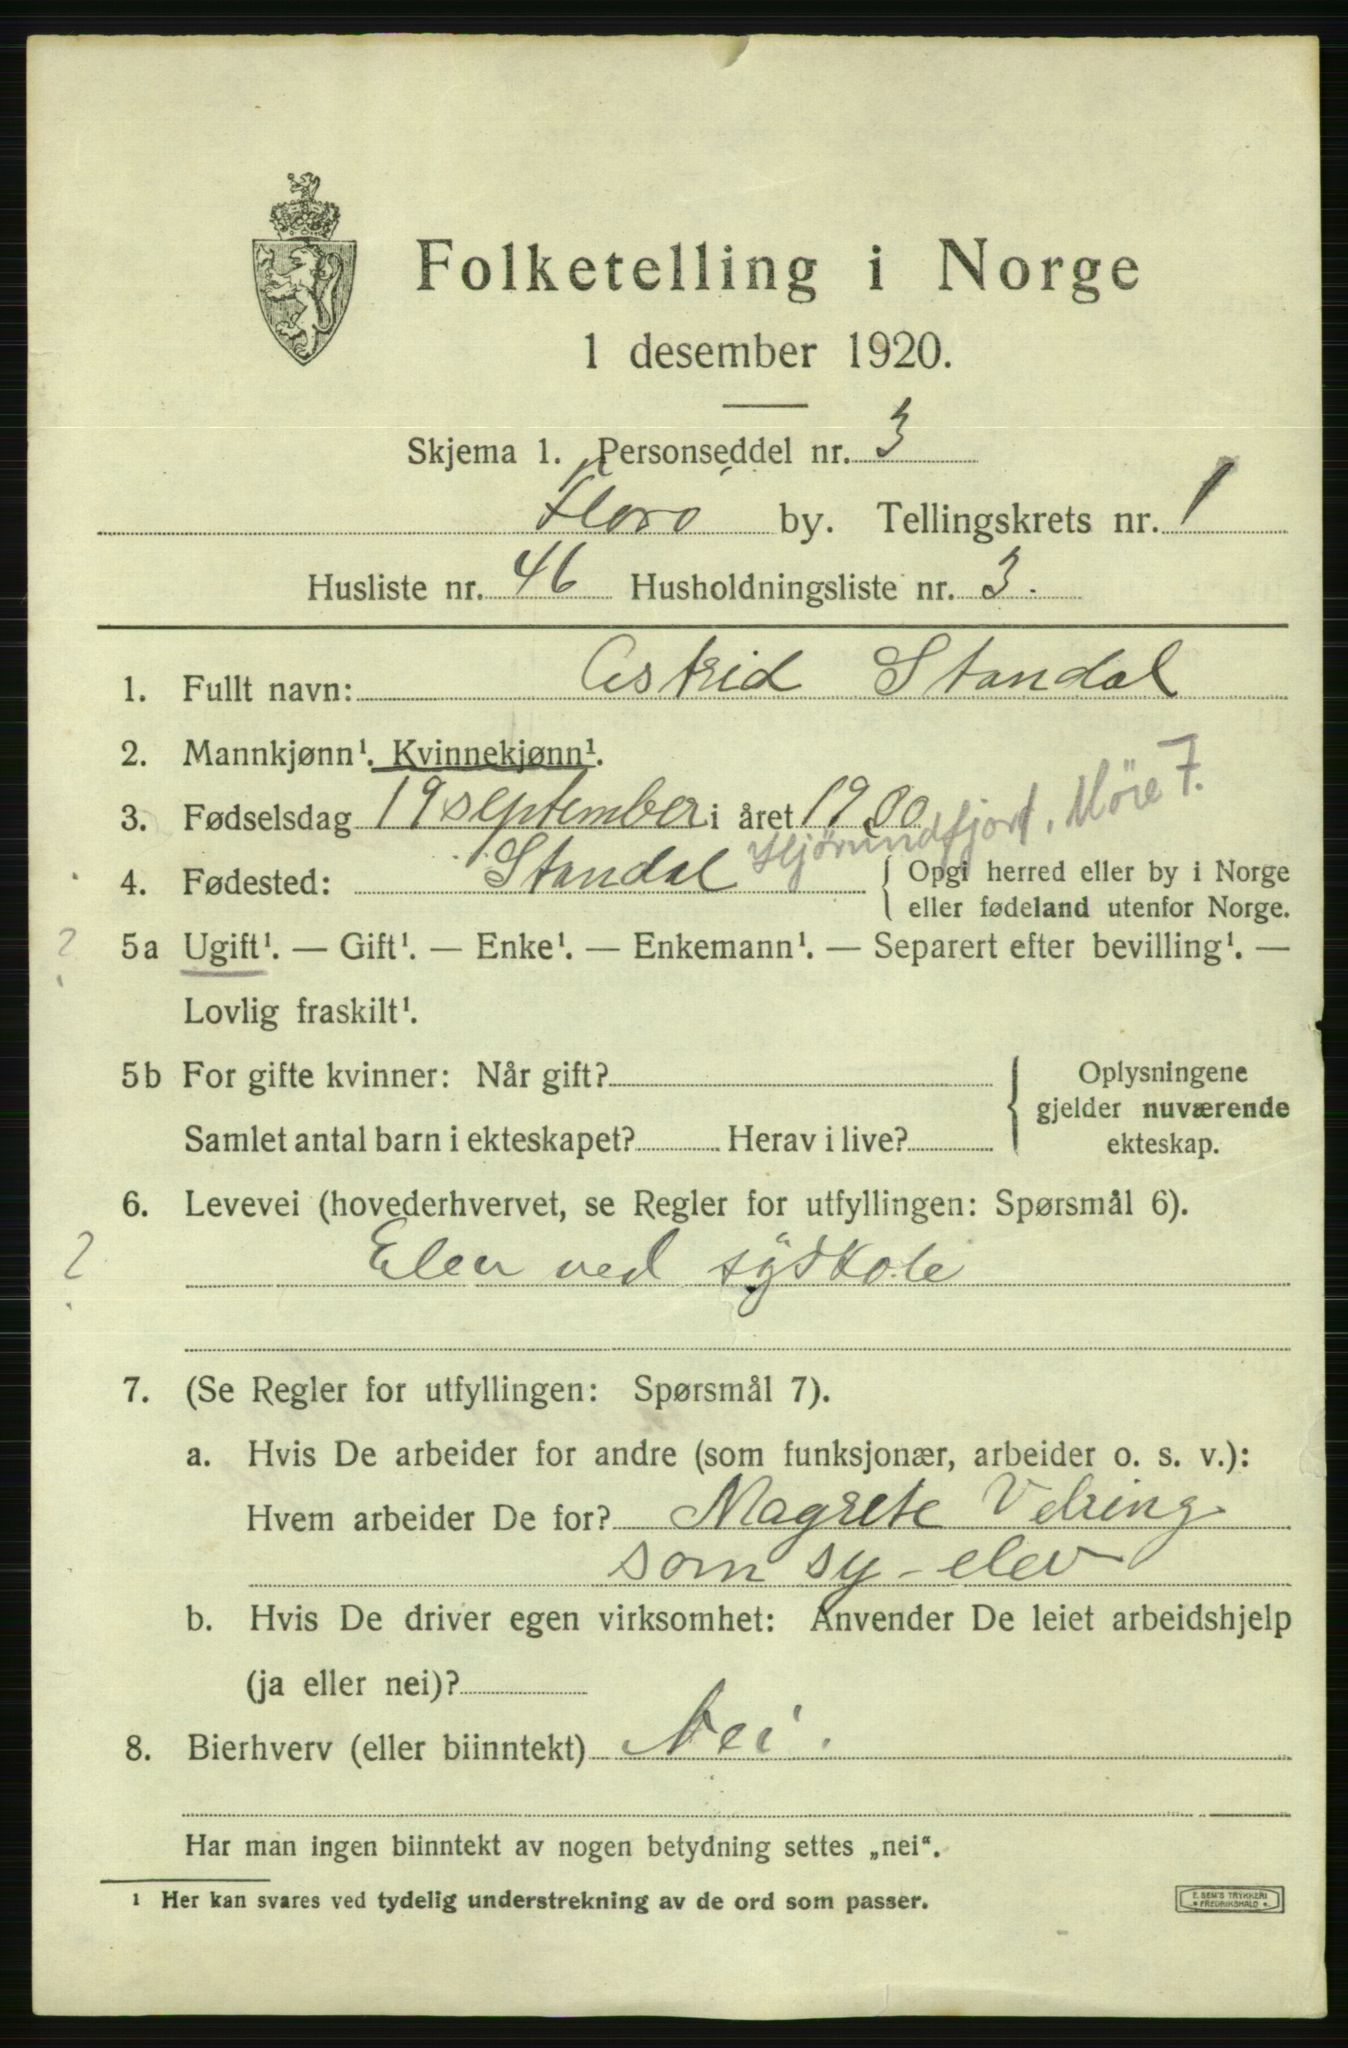 Folketelling i Norge
1 desember 1920.
Skjema 1. Personseddel nr. 3
Florö by. Tellingskrets nr. 1
Husliste nr. 46 Husholdningsliste nr. 3.
1. Fullt navn: Astrid Standal
2. Mannkjønn¹. Kvinnekjønn¹.
3. Fødselsdag 19 september i året 1900
Hjörundfjord, Möre 7.
4. Fødested: Standal { Opgi herred eller by i Norge
eller fødeland utenfor Norge.
? 5a Ugift¹. — Gift¹. — Enke¹. — Enkemann¹. — Separert efter bevilling¹. —
Lovlig fraskilt¹.
5b For gifte kvinner: Når gift? { Oplysningene
gjelder nuværende
Samlet antal barn i ekteskapet? Herav i live? ekteskap.
6. Levevei (hovederhvervet, se Regler for utfyllingen: Spørsmål 6).
? Elev ved syskole
7. (Se Regler for utfyllingen: Spørsmål 7).
a. Hvis De arbeider for andre (som funksjonær, arbeider o. s. v.):
Hvem arbeider De for? Magrete
som sy-elev
b. Hvis De driver egen virksomhet: Anvender De leiet arbeidshjelp
(ja eller nei)?
8. Bierhverv (eller biinntekt) Nei.
Har man ingen biinntekt av nogen betydning settes „nei“.
¹ Her kan svares ved tydelig understrekning av de ord som passer.
E. SEM'S TRYKKERI
FREDRIKSHALD